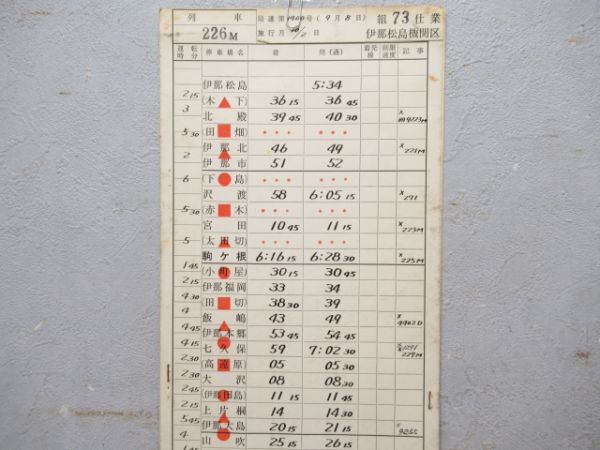 列車
局達第1900号 (9月8日)
組 73 仕業
226M
施行月 10/2日
伊那松島機関区
運転時分 停車場名 着 発(通) 着発線 制限速度 記事
伊那松島 5:34
2 15
(木下) 36 15 36 45
3
北殿 39 45 40 30
5 30
(田畑) • • • • • •
伊那北 46 49 × 221M
2
伊那市 51 52
6
(下島) • • • • • •
沢渡 58 6:05 15 × 291
5 30
(赤木) • • • • • •
宮田 10 45 11 15 × 223M
5
(太田切) • • • • • •
駒ケ根 6:16 15 6:28 30 × 225M
1 45
(小町屋) 30 15 30 45
2 15
伊那福岡 33 34
4 30
(田切) 38 30 39
4
飯嶋 43 49
4 45
伊那本郷 53 45 54 45
4 15
七久保 59 7:02 30
2 30
(高遠原) 05 05 30
2 30
大沢 08 08 30
2 45
(伊那田島) 11 15 11 45
2 15
上片桐 14 14 30
5 45
伊那大島 20 15 21 15
4
山吹 25 15 26 15
1 45